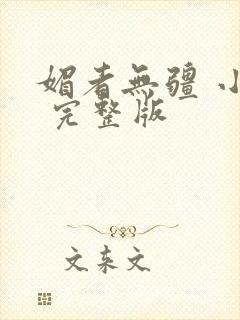 媚者無疆 小
完整版
文東文